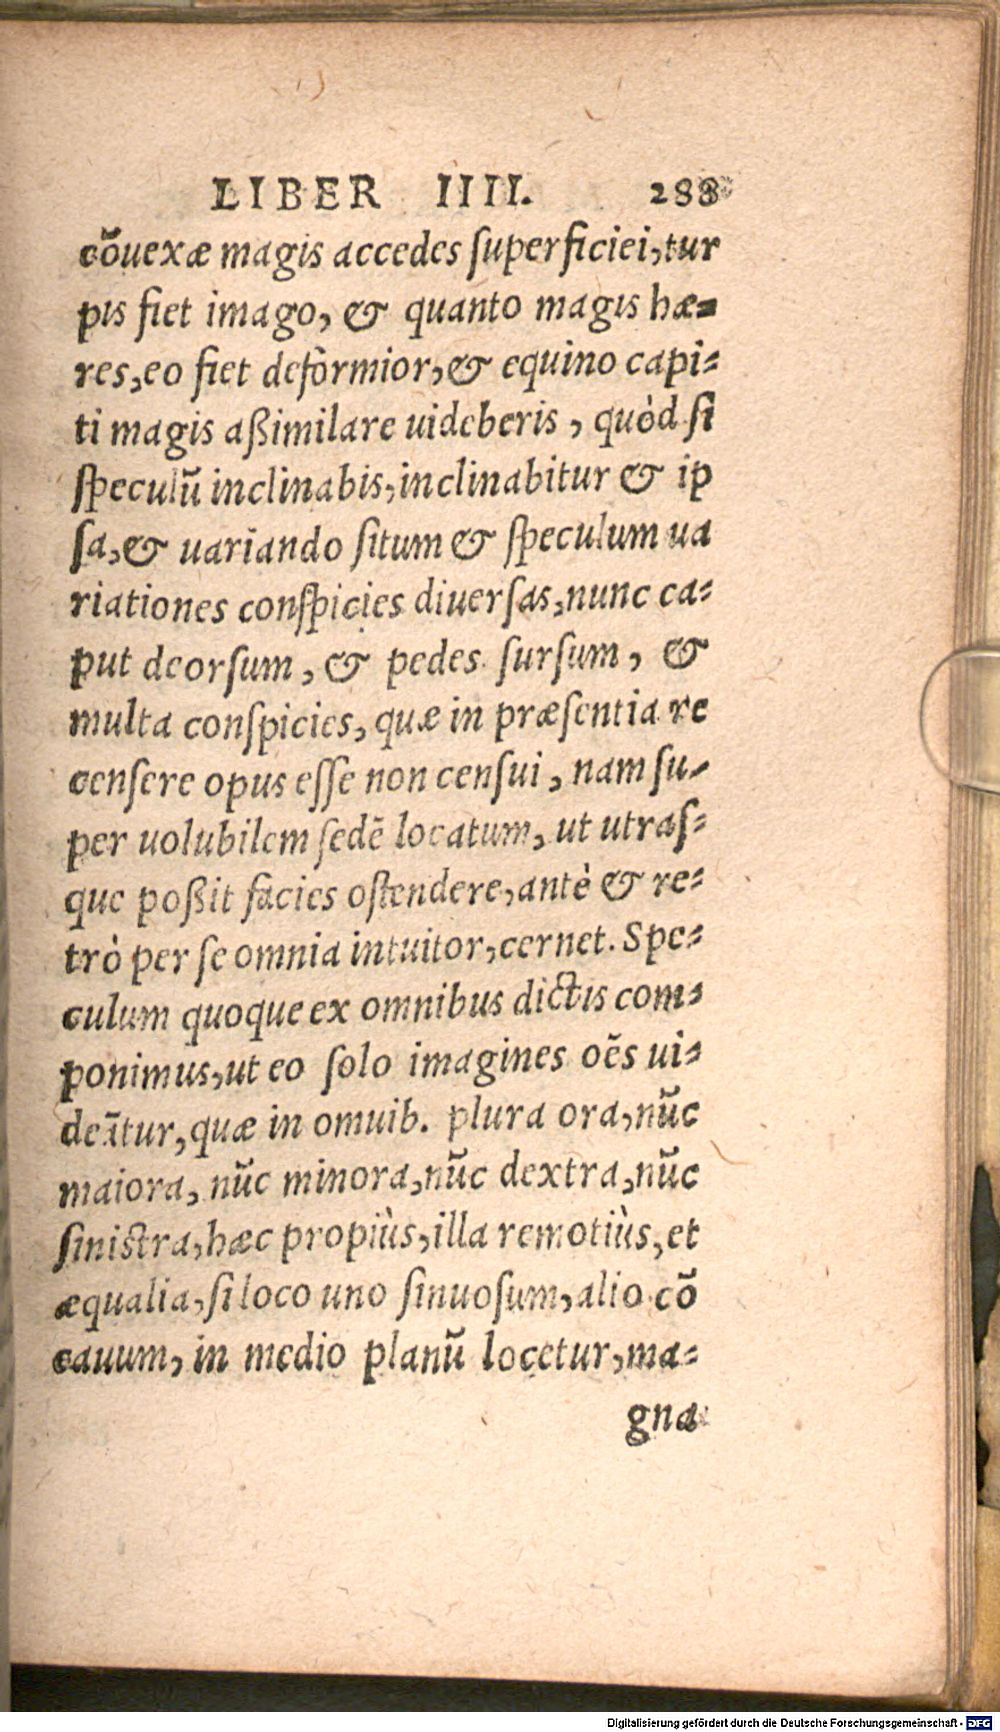 LIBER IIII. 288
cōuexæ magis accedes ſuperficiei,tur
pis fiet imago, & quanto magis hæ-
res,eo fiet deformior,& equino capi-
ti magis aßimilare uideberis, quòd ſi
ſpeculū inclinabis,inclinabitur & ip
ſa,& uariando ſitum & ſpeculum ua
riationes conſpicies diuerſas,nunc ca-
put deorſum, & pedes ſurſum, &
multa conſpicies, quæ in præſentia re
cenſere opus eſſe non cenſui, nam ſu-
per uolubilem ſedē locatum, ut utraſ-
que poßit facies oſtendere,antè & re-
trò per ſe omnia intuitor,cernet. Spe-
culum quoque ex omnibus dictis com-
ponimus,ut eo ſolo imagines oēs ui-
deātur,quæ in omuib. plura ora,nūc
maiora, nūc minora,nūc dextra,nūc
ſiniſtra,hæc propiùs,illa remotiùs,et
æqualia,ſi loco uno ſinuoſum,alio cō
cauum, in medio planū locetur,ma-
gna
Digitalisierung gefördert durch die Deutsche Forschungsgemeinschaft - DFG